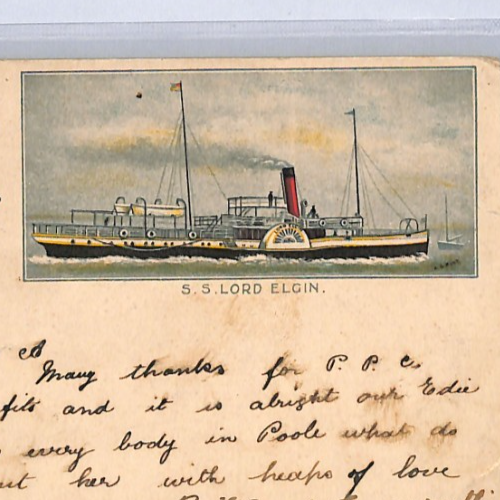 S.S. LORD ELGIN.
Many thanks for P. P. C.
fits and it is alright our Edie
every body in Poole what do
her with heaps of love